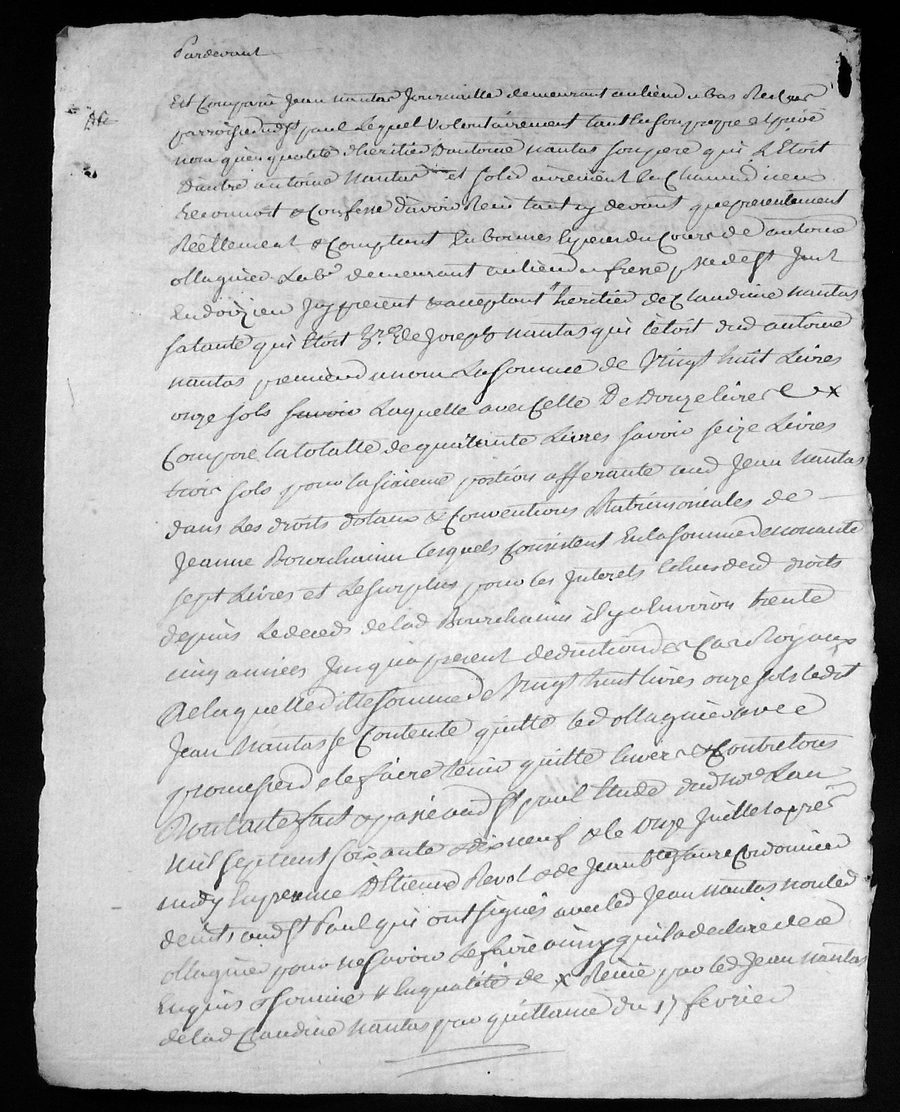 Pardevant
Est Comparu Jean nantas Journaillé demeurant au lieu du bas
parroisse dud St paul Lequel Volontairement tant En son propre et privé
nom qu'en qualité d'heritier D'antoine nantas son pere qui L'Etoit
D'autre antoine Nantas et solidairement
Reconnoit & Confesse D'avoir Receu tant cy devant que presentement
Réellement & Comptant En bonnes Especes du Cours de antoine
ollagnier Labr demeurant au lieu du fresne psse de St Just
En doizieu Icy present & acceptant heritier de Claudine nantas
sa tante qui Etoit de Joseph nantas qui l'étoit dud antoine
nantas premier du nom La somme de Vingt huit Livres
onze sols Laquelle avec Celle De Douze livres x
Compose la totalle de quarante Livres savoir seize Livres
trois sols pour la sixieme portion afferante aud Jean Nantas
dans Les droits dotaux & Conventions Matrimoniales de
Jeanne Bourchanin lesquels Consistent En la somme de nonante
sept Livres et Le surplus pour les Interets Echus desd droits
depuis Le deceds de lad Bourchanin il y a Environ trente
cinq années Jusqu'a present deduction des Cas Royaux
De laquelle ditte somme de Vingt huit livres onze sols ledit
Jean Nantas se Contente quitte led ollagnier avec
promesse de le faire tenir quitte Envers & Contre tous
Dont acte fait & passé aud St paul Etude dud nore L'an
mil sept cent soixante & dix neuf & le onze Juillet après
midy En presence D'Etienne Revol & de Jean Bte faure Cordonnier
dud St Paul qui ont signés avec led Jean nantas non led
ollagnier pour ne savoir Le faire ainsy qu'il a declaré de ce
Enquis & sommé & En qualité de x Reçue par led Jean Nantas
de lad Claudine Nantas par quittance du 17 fevrier